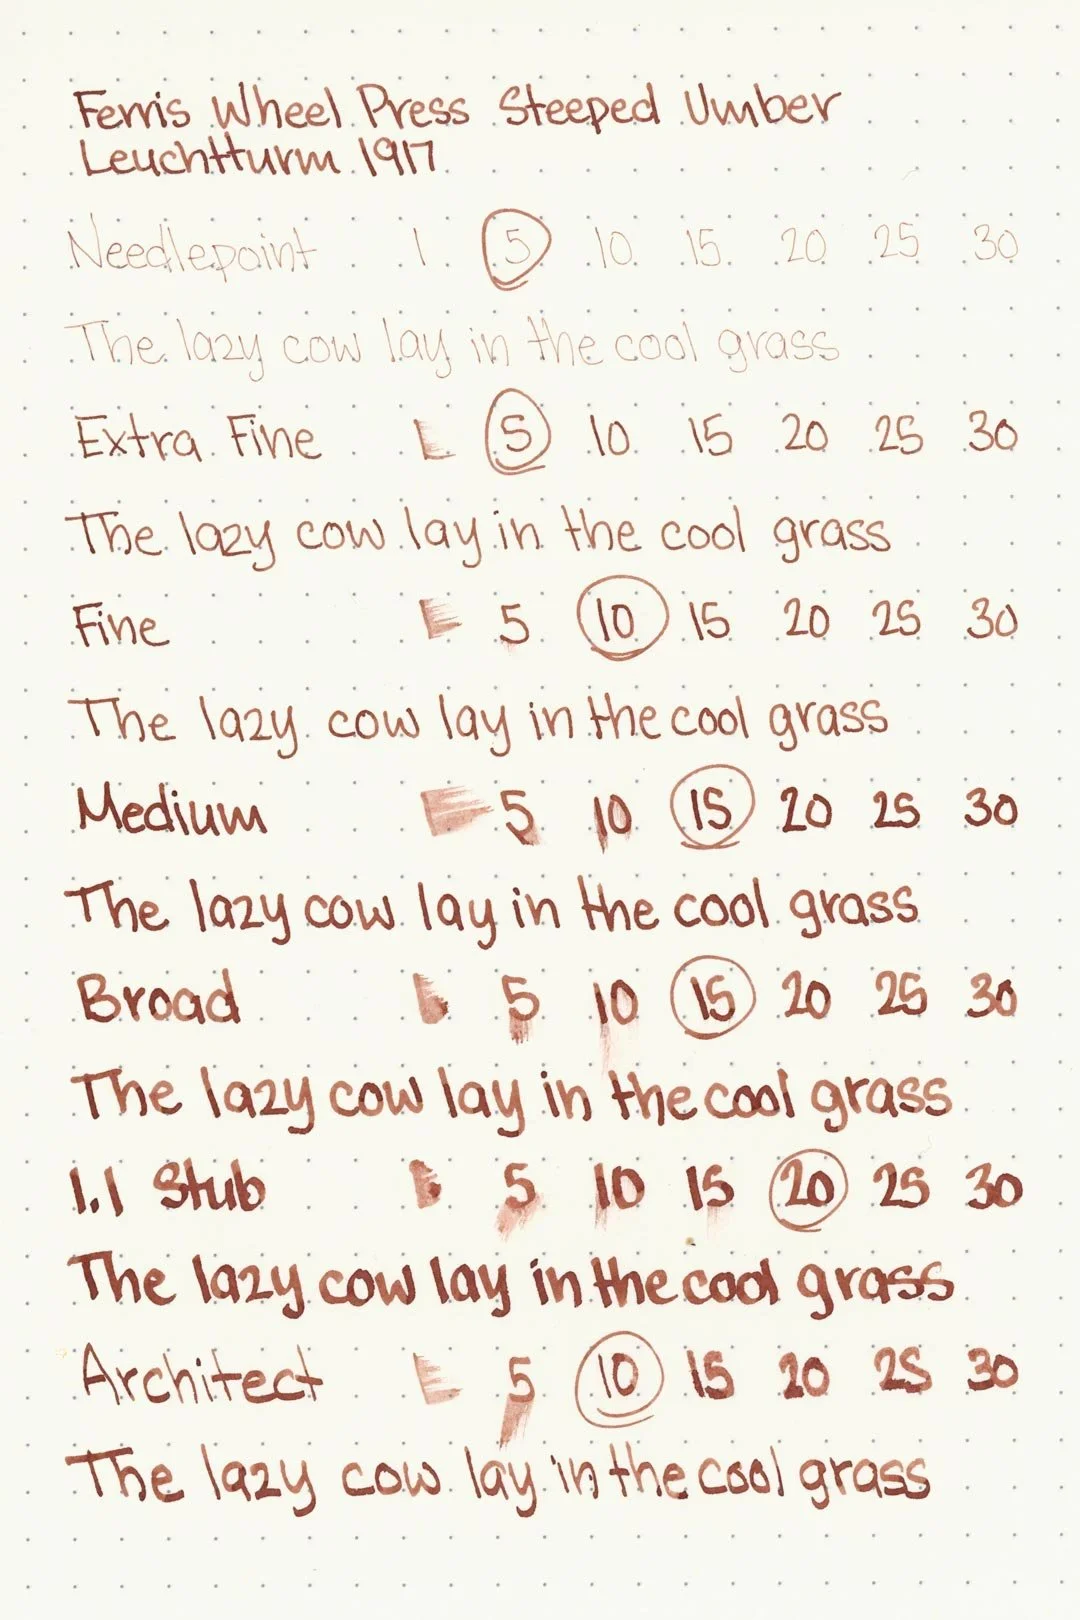 Ferris Wheel Press Steeped Umber
Leuchtturm 1917
Needlepoint 1 5 10 15 20 25 30
The lazy cow lay in the cool grass
Extra Fine 5 10 15 20 25 30
The lazy cow lay in the cool grass
Fine 5 10 15 20 25 30
The lazy cow lay in the cool grass
Medium 5 10 15 20 25 30
The lazy cow lay in the cool grass
Broad 5 10 15 20 25 30
The lazy cow lay in the cool grass
1.1 Stub 5 10 15 20 25 30
The lazy cow lay in the cool grass
Architect 5 10 15 20 25 30
The lazy cow lay in the cool grass